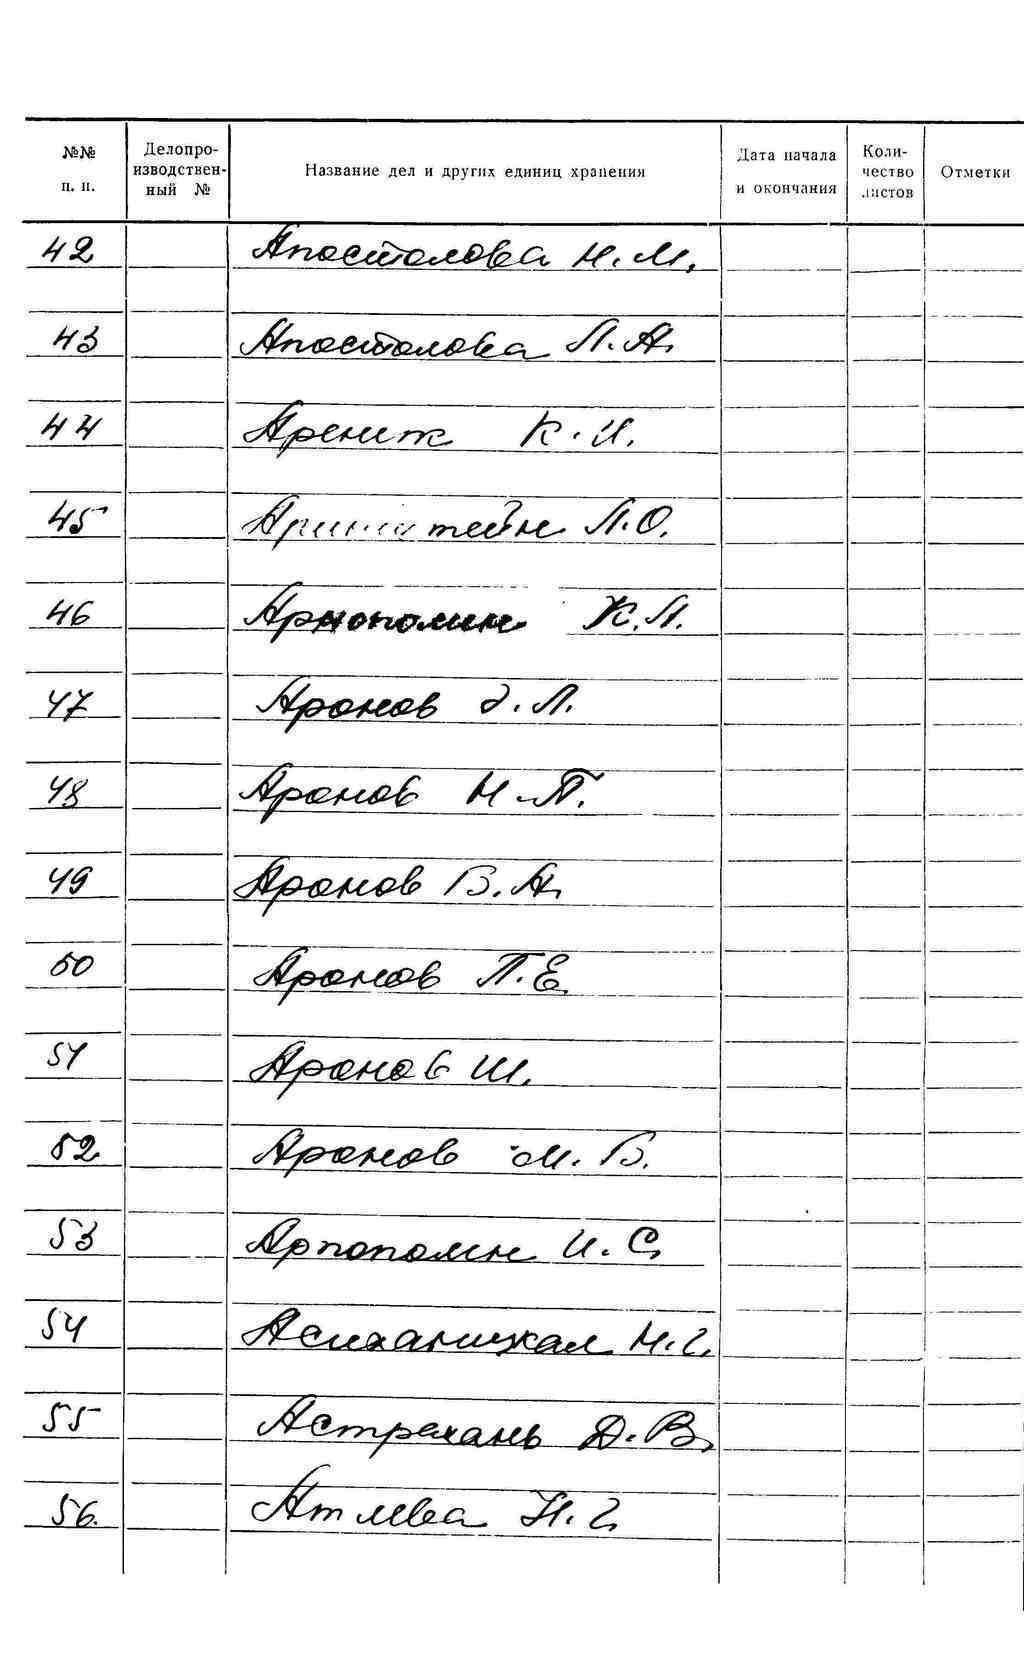 №№ п. п. Делопроизводственный № Название дел и других единиц хранения Дата начала и окончания Количество листов Отметки
42 Апостолова Н. М.
43 Апостолова Л. А.
44 К. И.
45 Л. О.
46 Арнополин К. Л.
47 Аронов Л.
48 Аронов Н. П.
49 Аронов В. А.
50 Аронов П. Е.
51 Аронов Ш.
52 Аронов М. В.
53 Арпополин И. С.
54 Н. Г.
55 Астрехань Д. В.
56. Н. Г.